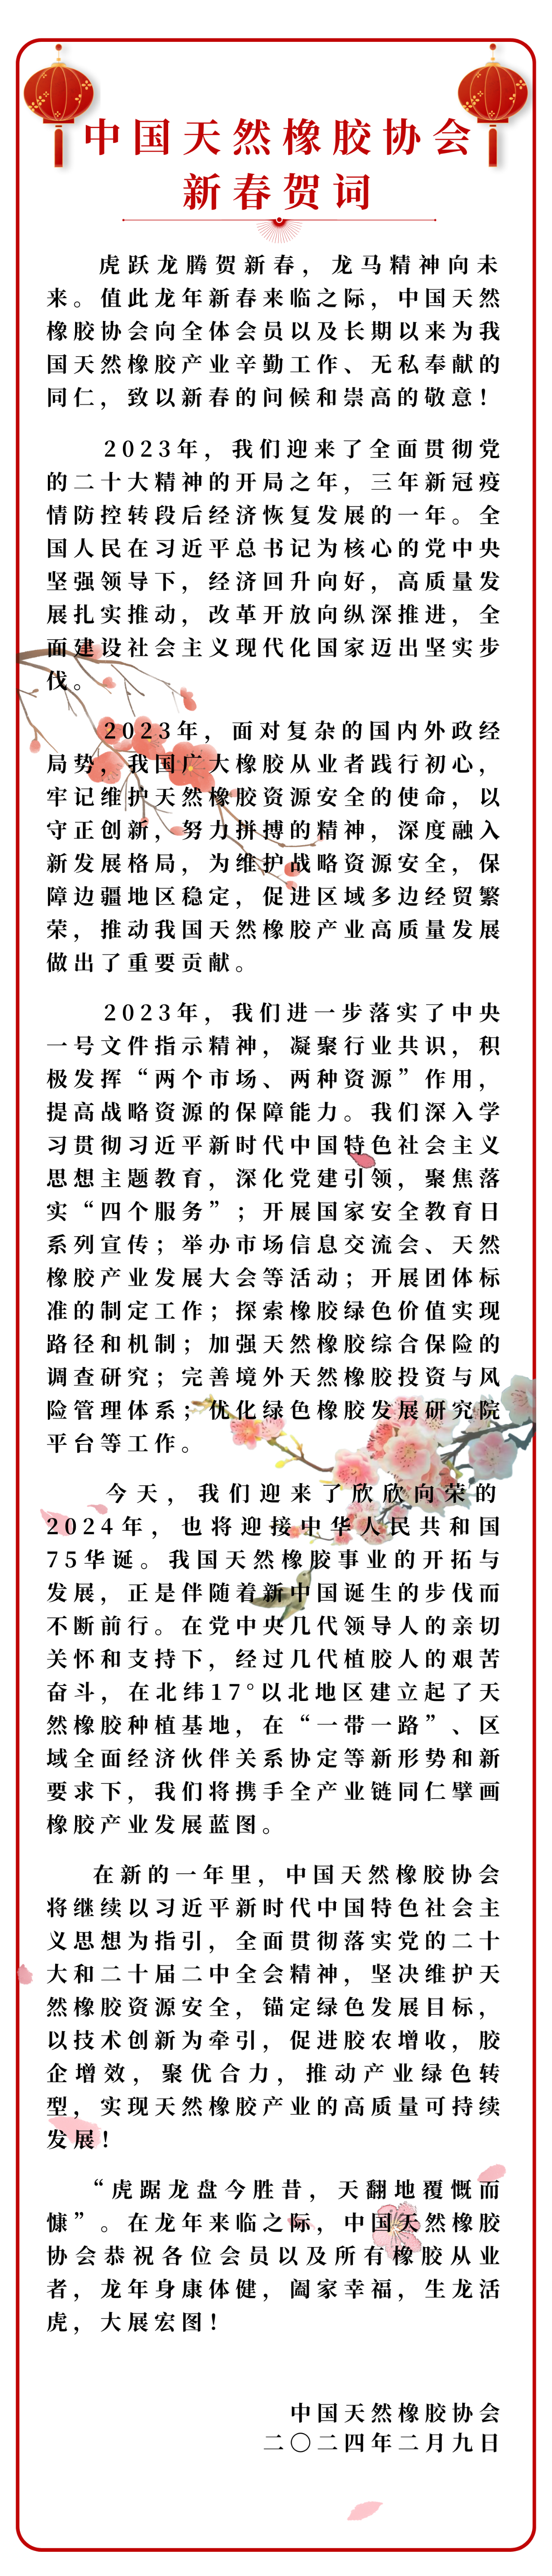 中国天然橡胶协会
新春贺词
虎跃龙腾贺新春，龙马精神向未
来。值此龙年新春来临之际，中国天然
橡胶协会向全体会员以及长期以来为我
国天然橡胶产业辛勤工作、无私奉献的
同仁，致以新春的问候和崇高的敬意！
2023年，我们迎来了全面贯彻党
的二十大精神的开局之年，三年新冠疫
情防控转段后经济恢复发展的一年。全
国人民在习近平总书记为核心的党中央
坚强领导下，经济回升向好，高质量发
展扎实推动，改革开放向纵深推进，全
面建设社会主义现代化国家迈出坚实步
伐。
2023年，面对复杂的国内外政经
局势，我国广大橡胶从业者践行初心，
牢记维护天然橡胶资源安全的使命，以
守正创新，努力拼搏的精神，深度融入
新发展格局，为维护战略资源安全，保
障边疆地区稳定，促进区域多边经贸繁
荣，推动我国天然橡胶产业高质量发展
做出了重要贡献。
2023年，我们进一步落实了中央
一号文件指示精神，凝聚行业共识，积
极发挥“两个市场、两种资源”作用，
提高战略资源的保障能力。我们深入学
习贯彻习近平新时代中国特色社会主义
思想主题教育，深化党建引领，聚焦落
实“四个服务”；开展国家安全教育日
系列宣传；举办市场信息交流会、天然
橡胶产业发展大会等活动；开展团体标
准的制定工作；探索橡胶绿色价值实现
路径和机制；加强天然橡胶综合保险的
调查研究；完善境外天然橡胶投资与风
险管理体系；优化绿色橡胶发展研究院
平台等工作。
今天，我们迎来了欣欣向荣的
2024年，也将迎接中华人民共和国
75华诞。我国天然橡胶事业的开拓与
发展，正是伴随着新中国诞生的步伐而
不断前行。在党中央几代领导人的亲切
关怀和支持下，经过几代植胶人的艰苦
奋斗，在北纬17°以北地区建立起了天
然橡胶种植基地，在“一带一路”、区
域全面经济伙伴关系协定等新形势和新
要求下，我们将携手全产业链同仁擘画
橡胶产业发展蓝图。
在新的一年里，中国天然橡胶协会
将继续以习近平新时代中国特色社会主
义思想为指引，全面贯彻落实党的二十
大和二十届二中全会精神，坚决维护天
然橡胶资源安全，锚定绿色发展目标，
以技术创新为牵引，促进胶农增收，胶
企增效，聚优合力，推动产业绿色转
型，实现天然橡胶产业的高质量可持续
发展！
“虎踞龙盘今胜昔，天翻地覆慨而
慷”。在龙年来临之际，中国天然橡胶
协会恭祝各位会员以及所有橡胶从业
者，龙年身康体健，阖家幸福，生龙活
虎，大展宏图！
中国天然橡胶协会
二〇二四年二月九日